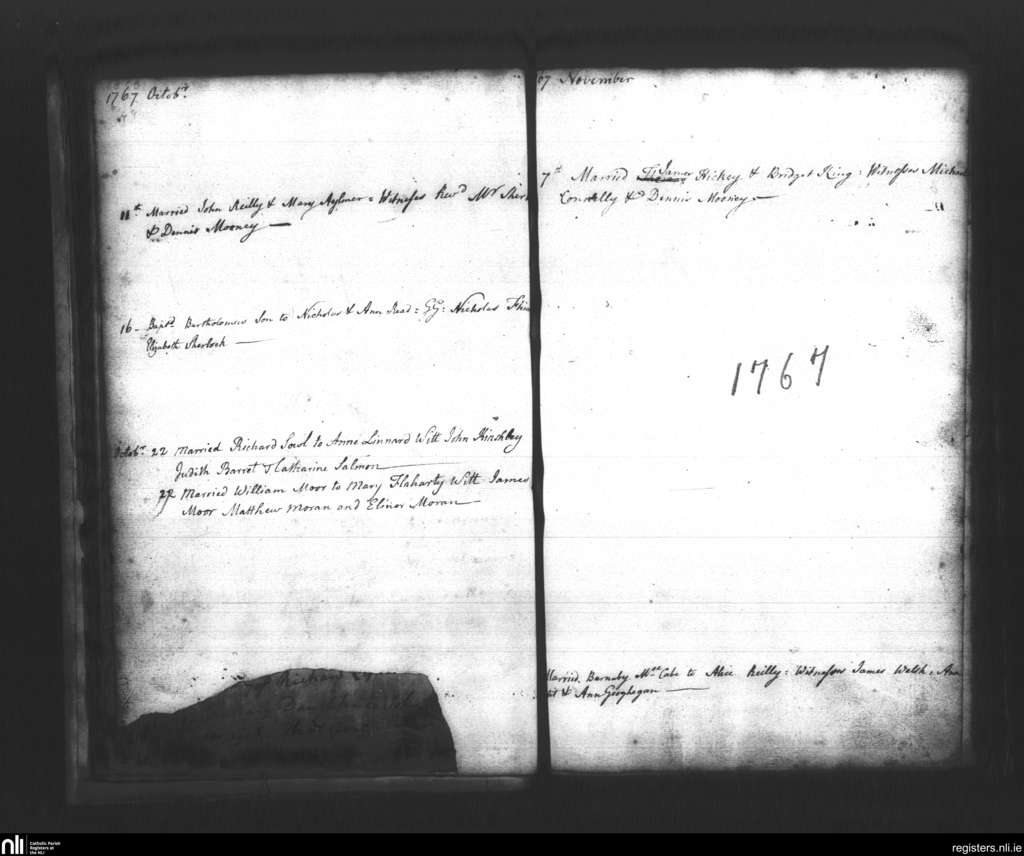 1767 Octobr
11th Married John Reilly & Mary Aylmer = Witnesses Revd Mr Sher
& Dennis Mooney
16 - Baptd Bartholomew Son to Nicholas & Ann Read = GG: Nicholas
Elizabeth Sherlock
Octobr 22 Married Richard Sowl to Anne Linnard Witt John Hinshley
Judith Barret & Catharine Salmon
27 Married William Moor to Mary Flaharty Witt James
Moor Matthew Moran and Elinor Moran
Richard
67 November
7th Married James Hickey & Bridget King: Witnesses Michael
Connolly & Dennis Mooney
1767
Married Barnaby McCabe to Alice Reilly: Witnesses James Welsh, Ann
& Ann Geoghegan
nli Catholic Parish Registers at the NLI
registers.nli.ie